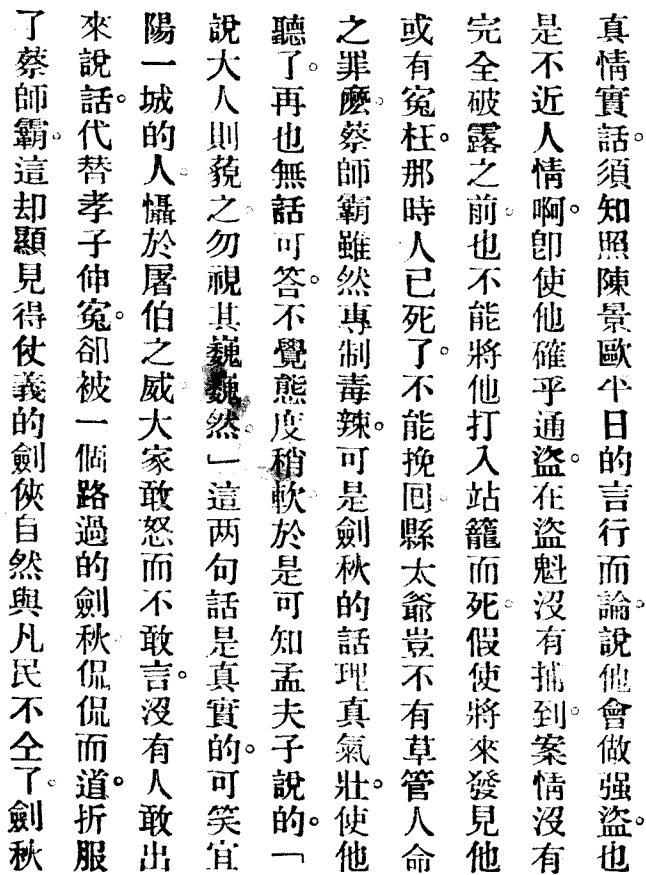 真情實話。須知照陳景歐平日的言行而論。說他會做强盜。也
是不近人情啊。卽使他確乎通盜。在盜魁沒有捕到。案情沒有
完全破露之前。也不能將他打入站籠而死。假使將來發見他
或有冤枉。那時人已死了。不能挽回。縣太爺豈不有草管人命
之罪麽。蔡師霸雖然專制毒辣。可是劍秋的話理真氣壯。使他
聽了。再也無話可答。不覺態度稍軟。於是可知孟夫子說的。「
說大人則藐之。勿視其巍巍然。」這两句話是真實的。可笑宜
陽一城的人。懾於屠伯之威。大家敢怒而不敢言。沒有人敢出
來說話。代替孝子伸冤。卻被一個路過的劍秋。侃侃而道。折服
了蔡師霸。這却顯見得仗義的劍俠自然與凡民不仝了。劍秋